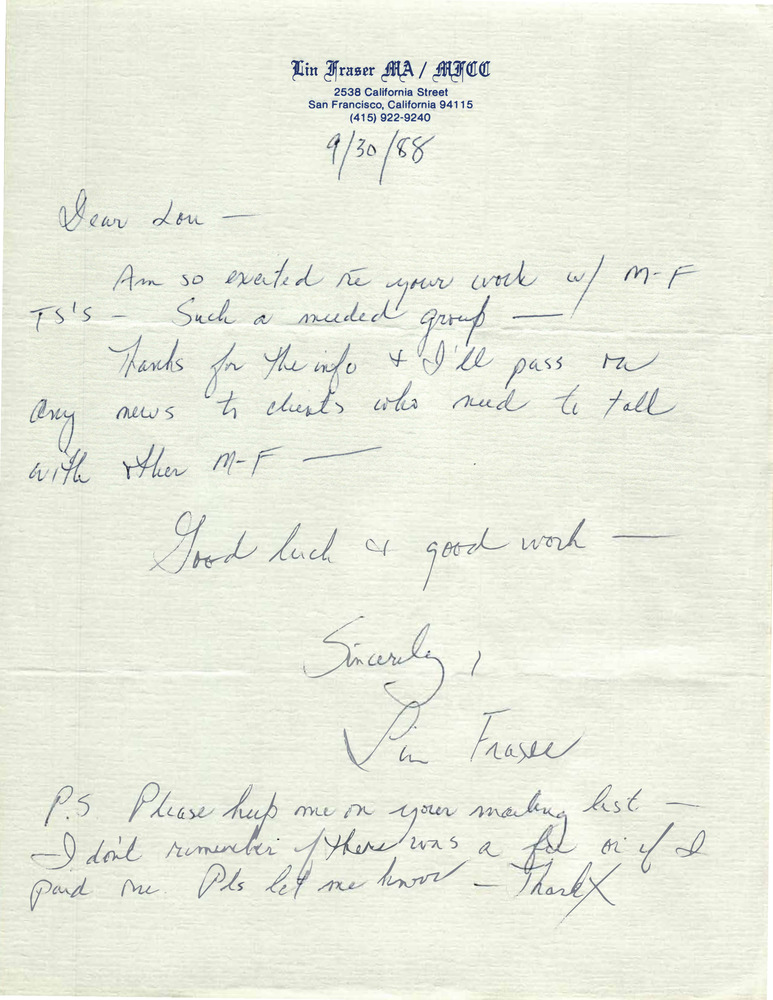 Lin Fraser MA / MFCC
2538 California Street
San Francisco, California 94115
(415) 922-9240
9/30/88
Dear Lou —
Am so excited re your work w/ M-F
TS'S — Such a needed group —
Thanks for the info & I'll pass on
any news to clients who need to talk
with other M-F —
Good luck & good work —
Sincerely,
Lin Fraser
P.S Please keep me on your mailing list —
I don't remember if there was a fee or if I
paid one. Pls let me know — Thanx